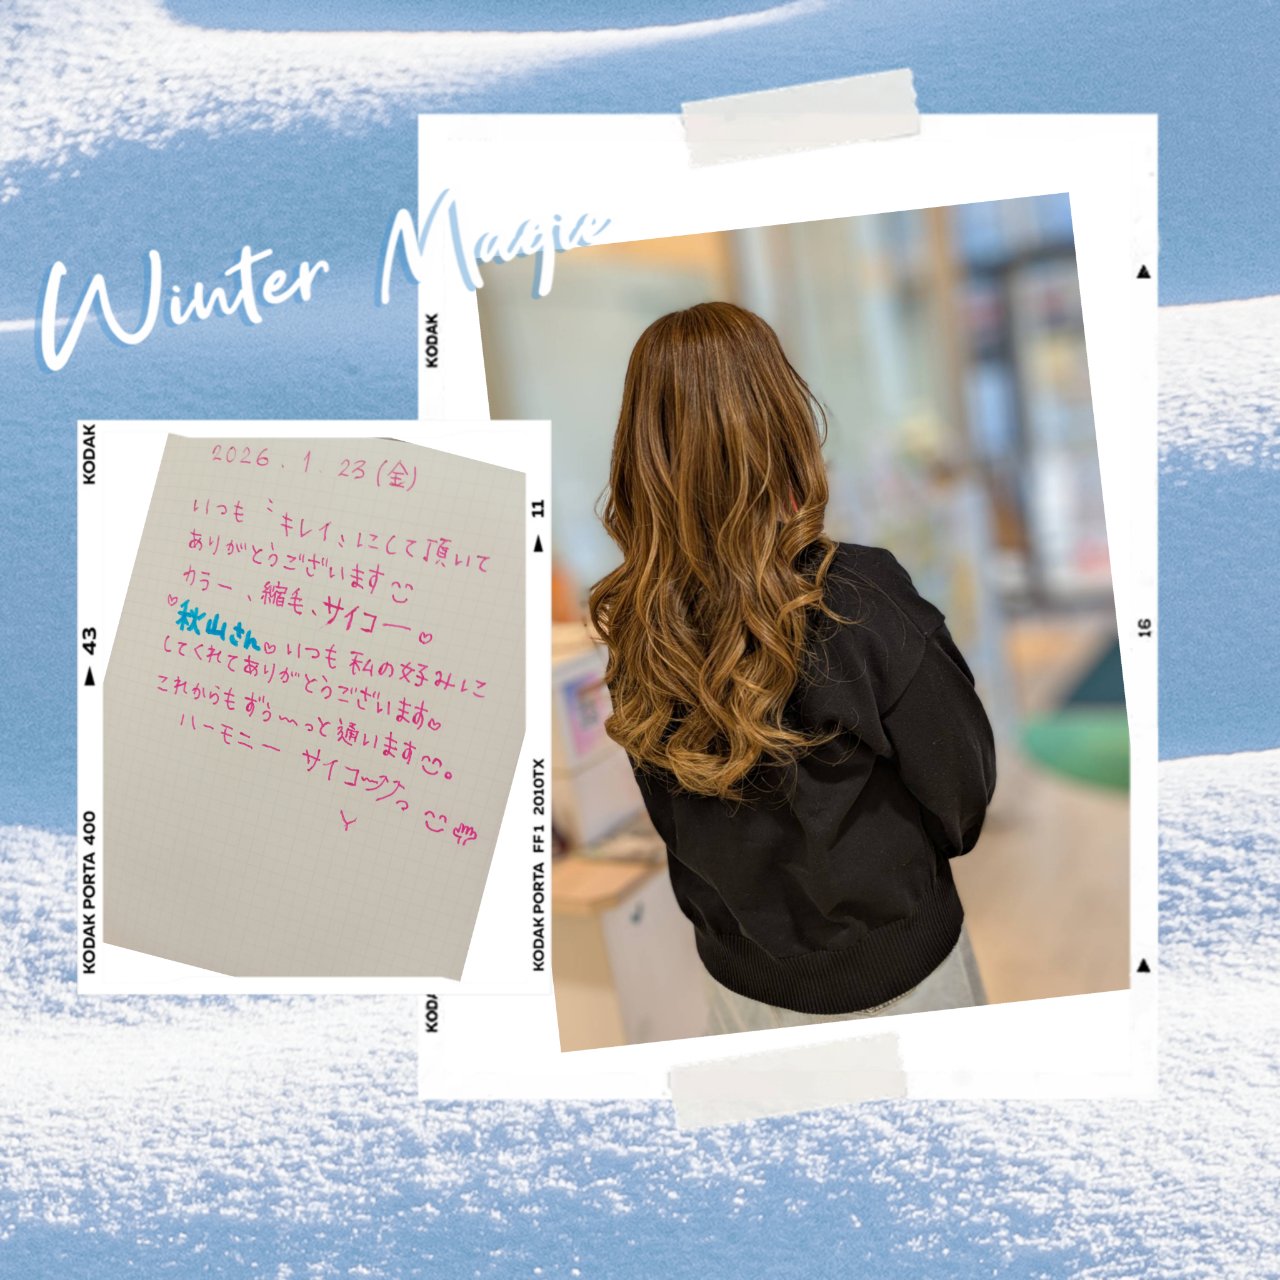 Winter Magic
KODAK
KODAK
2026.1.23(金)
いつも〝キレイ〟にして頂いて
ありがとうございます
カラー、縮毛、サイコー♡
♡秋山さん♡いつも私の好みに
してくれてありがとうございます♡
これからもずぅ〜っと通います。
ハーモニー サイコ〜⤴⤴っ
Y
43
11
16
KODAK PORTA 400
KODAK PORTA FF1 2010TX
KODA